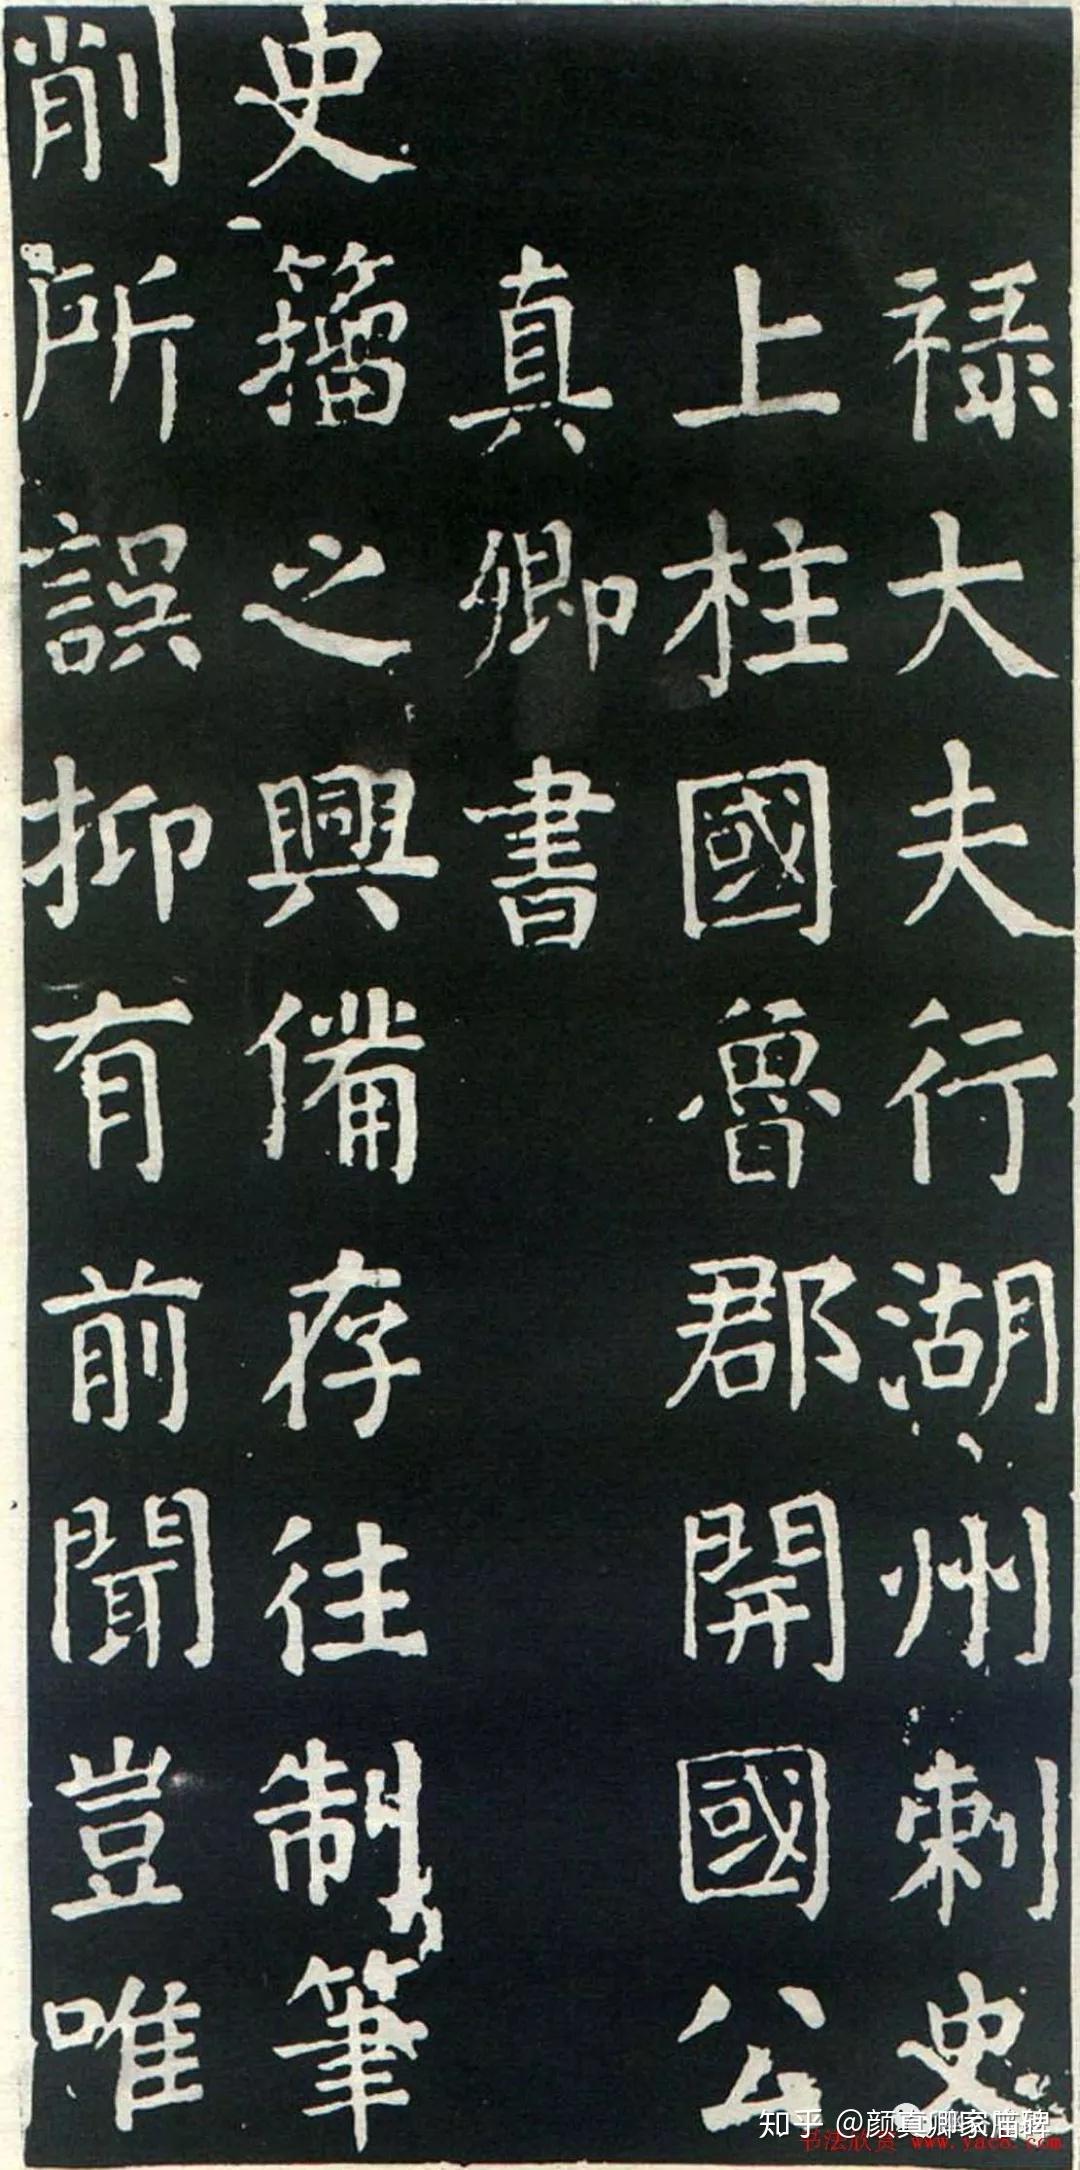 禄大夫行湖州刺史
上柱國魯郡開國公
真卿書
史籀之興備存往制筆
削所誤抑有前聞豈唯
知乎 @颜真卿家庙碑
书法欣赏 www.yac8.com